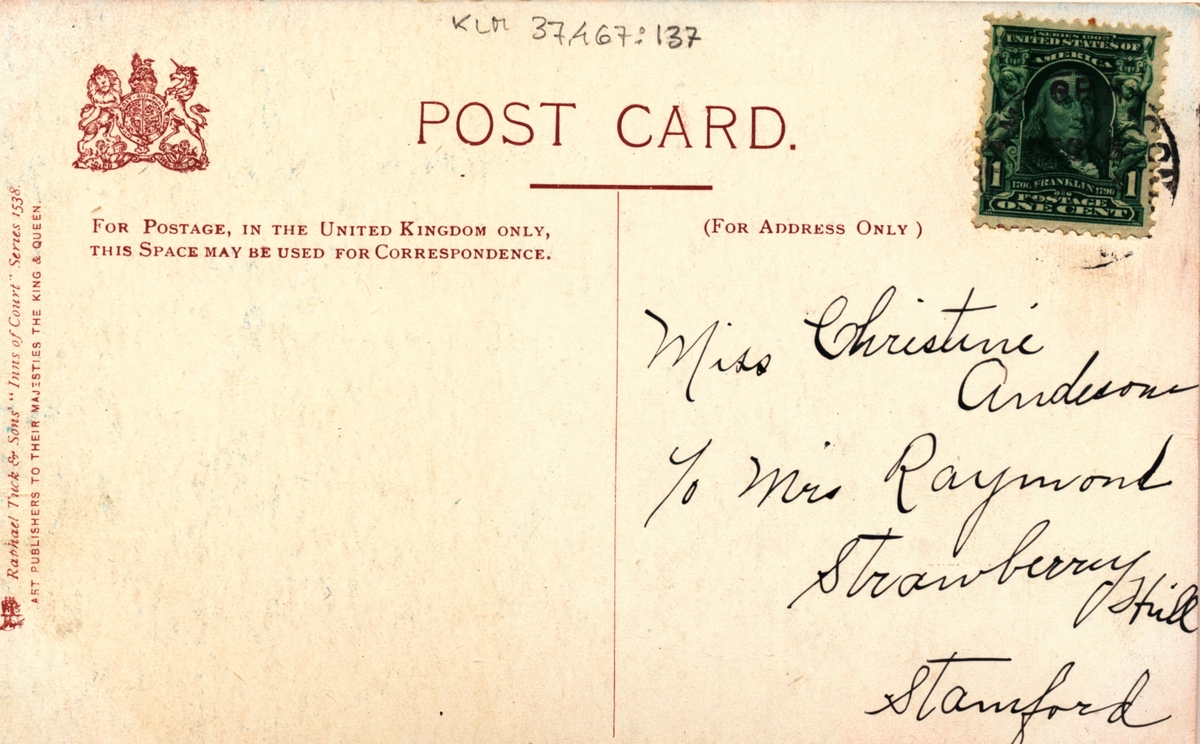 KLM 37467:137
POST CARD.
FOR POSTAGE, IN THE UNITED KINGDOM ONLY,
THIS SPACE MAY BE USED FOR CORRESPONDENCE.
(FOR ADDRESS ONLY)
SERIES 1902
UNITED STATES OF
AMERICA
1706 FRANKLIN 1790
1 1
POSTAGE
ONE CENT
CONN
Miss Christine
Andesone
c/o Mrs Raymond
Strawberry
Hill
Stamford
Raphael Tuck & Sons' "Inns of Court" Series 1538.
ART PUBLISHERS TO THEIR MAJESTIES THE KING & QUEEN.